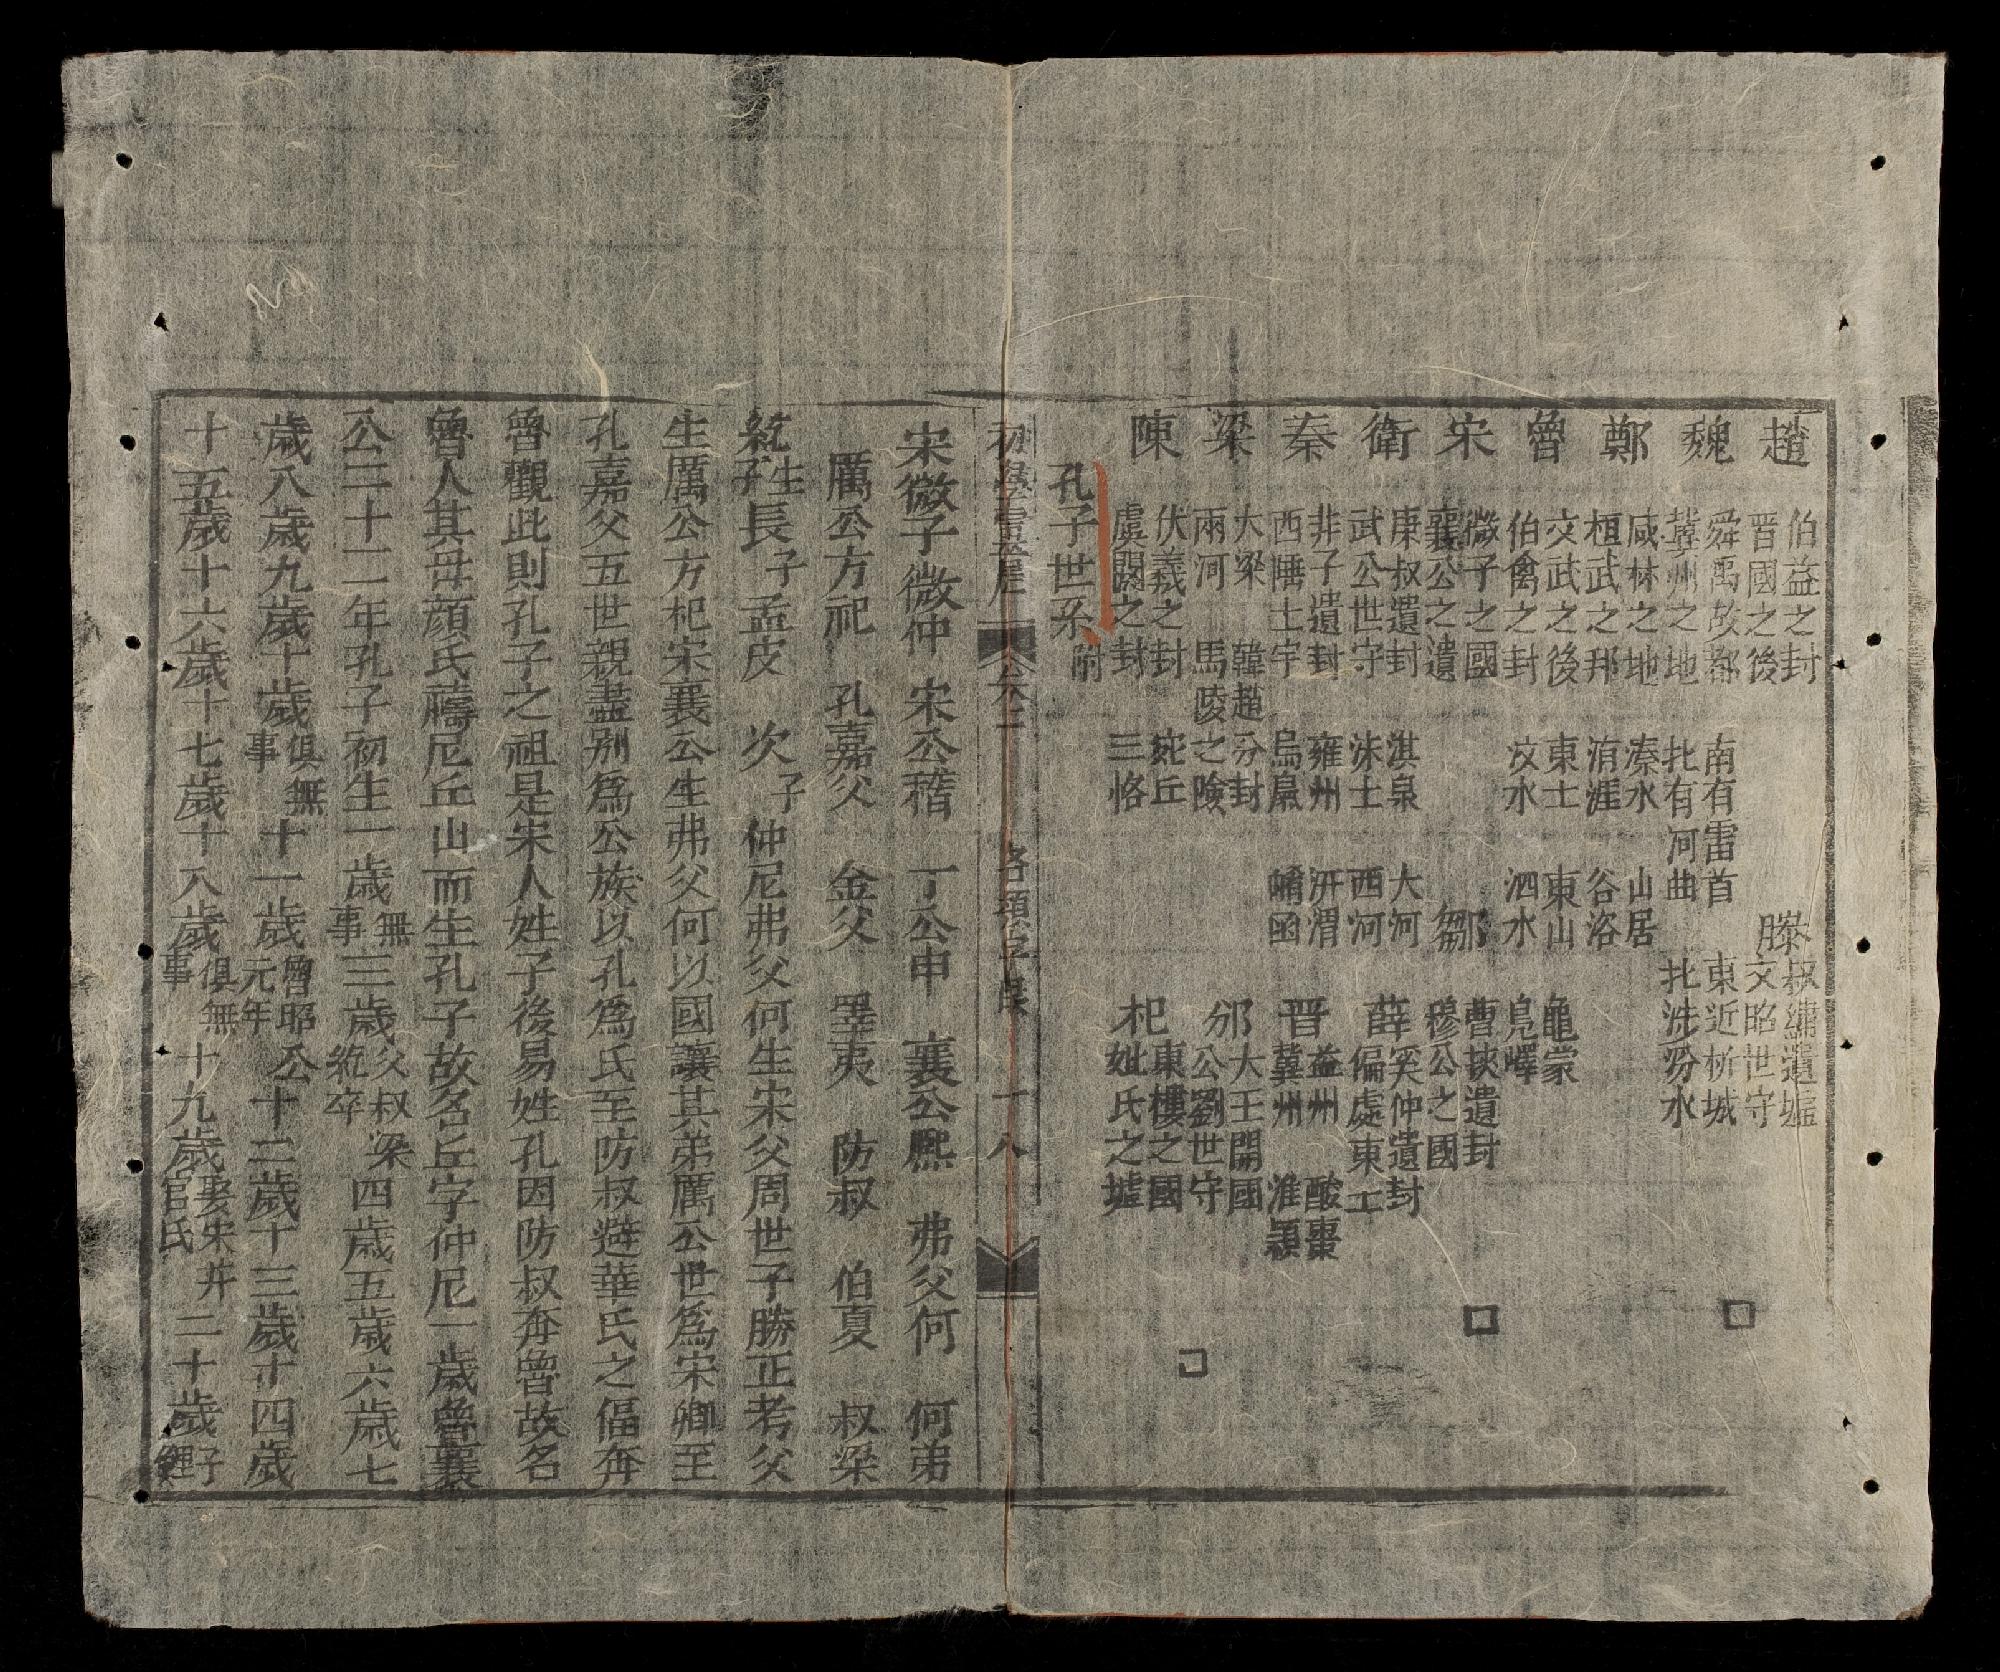 趙 伯益之封 晋國之後 滕 叔繡遺墟 文昭世守
魏 舜禹故都 冀州之地 南有雷首 北有河曲 東近析城 北涉汾水
鄭 咸林之地 桓武之邦 溱水 洧涯 山居 谷洛
魯 文武之後 伯禽之封 東土 汶水 東山 泗水 龜蒙 鳧嶧
宋 微子之國 襄公之遺 鄒 曹挾遺封 穆公之國
衛 康叔遺封 武公世守 淇泉 沬土 大河 西河 薛 奚仲遺封 偏處東土
秦 非子遺封 西陲土宇 雍州 鳥鼠 汧渭 崤函 晋 益州 冀州 酸棗 淮潁
梁 大梁 兩河 韓趙分封 馬陵之險 邠 大王開國 公劉世守
陳 伏羲之封 虞閼之封 宛丘 三恪 杞 東樓之國 姒氏之墟
孔子世系附
初學靈犀 卷二 各項字具 十八
宋微子微仲 宋公稽 丁公申 襄公熙 弗父何 何弟
厲公方祀 孔嘉父 金父 睪夷 防叔 伯夏 叔梁
紇生子長子孟皮 次子仲尼弗父何生宋父周世子勝正考父
生厲公方杞宋襄公生弗父何以國讓其弟厲公世爲宋卿至
孔嘉父五世親盡别爲公族以孔爲氏至防叔避華氏之偪奔
魯觀此則孔子之祖是宋人姓子後易姓孔因防叔奔魯故名
魯人其母顔氏禱尼丘山而生孔子故名丘字仲尼一歲魯襄
公二十二年孔子初生一歲無事三歲父叔梁紇卒四歲五歲六歲七
歲八歲九歲十歲俱無事十一歲魯昭公元年十二歲十三歲十四歲
十五歲十六歲十七歲十八歲俱無事十九歲娶宋幷官氏二十歲子鯉